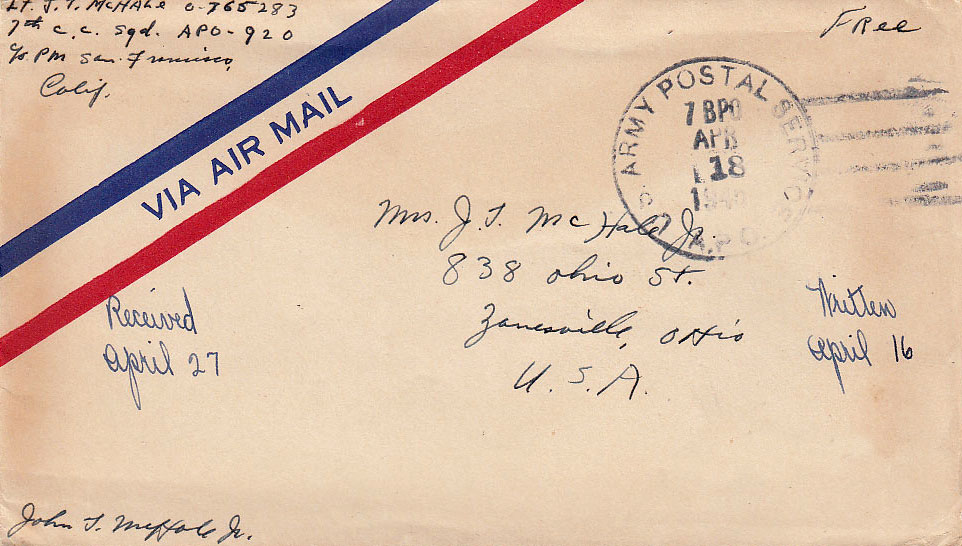 Lt. J. T. McHale O-765283
7th C.C. Sqd. APO-920
c/o PM San Francisco,
Calif.
Free
VIA AIR MAIL
ARMY POSTAL SERVICE
7 BPO
APR
18
A.P.O.
Mrs. J. T. McHale Jr.
838 Ohio St.
Zanesville, Ohio
U. S. A.
Received
April 27
Written
April 16
John T. McHale Jr.